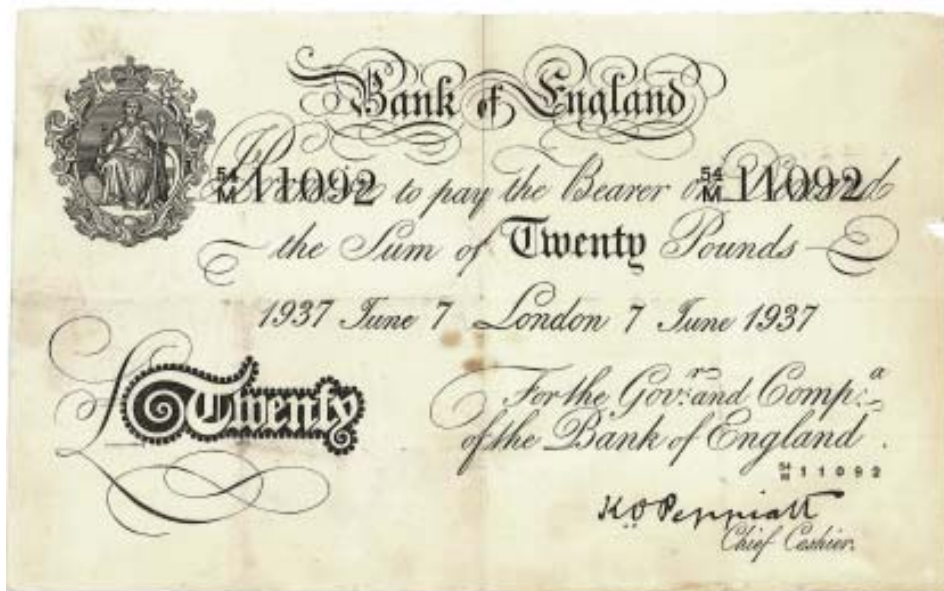 Bank of England
I Promise to pay the Bearer on Demand
54/M 11092 54/M 11092
the Sum of Twenty Pounds
1937 June 7 London 7 June 1937
£Twenty
For the Gov.r: and Comp.a:
of the Bank of England.
54/M 11092
K.O. Peppiatt
Chief Cashier.